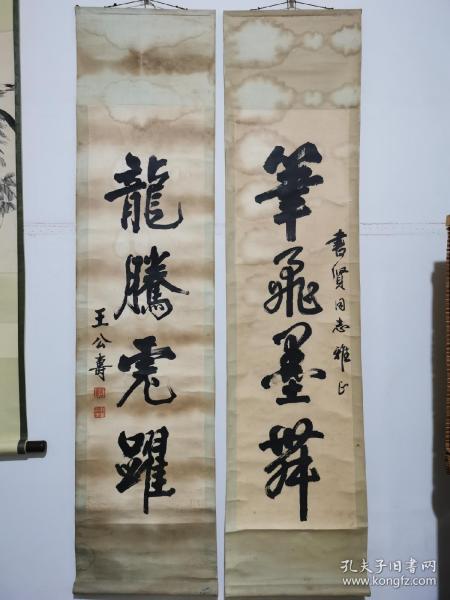 筆飛墨舞
書贤同志雅正
龍騰虎躍
王公壽
孔夫子旧书网
www.kongfz.com